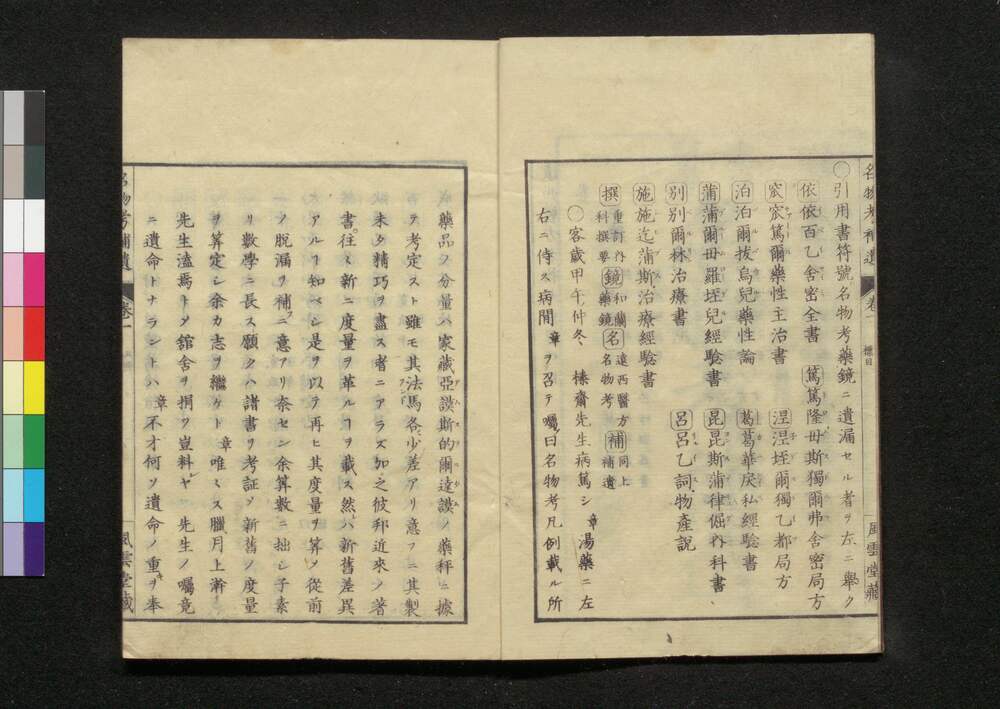 名物考補遺 卷一 標目 風雲堂藏
〇引用書符號名物考藥鏡ニ遺漏セル者ヲ左ニ舉ク
依依百乙舍密全書 篤篤隆毋斯獨爾弗舍密局方
㝧㝧篤爾藥性主治書 涅涅垤爾獨乙都局方
泊泊爾拔烏兒藥性論 葛葛華戻私經驗書
蒲蒲爾毋羅垤兒經驗書 昆昆斯蒲律倔內科書
別別爾林治療書 呂呂乙詞物產說
施施迄蒲斯治療經驗書
撰重訂內科撰要 鏡和蘭藥鏡 名遠西醫方名物考 補同上補遺
〇客歲甲午仲冬 榛齋先生病篤シ章湯藥ニ左
右ニ侍ス病間 章ヲ召テ囑曰名物考凡例載ル所
藥品ノ分量ハ家藏亞謨斯的爾達謨ノ藥秤ニ據
テ考定スト雖モ其法馬各少差アリ意フニ其製
未タ精巧ヲ盡ス者ニアラズ加之彼邦近來ノ著
書往々新ニ度量ヲ革ルヿヲ載ス然ハ新舊差異
アルヿ知ベシ是ヲ以テ再ヒ其度量ヲ算メ從前
ノ脫漏ヲ補ニ意アリ奈セン余算數ニ拙シ子素
リ數學ニ長ス願クハ諸書ヲ考証ソ新舊ノ度量
ヲ算定シ余カ志ヲ繼ケト 章唯々ス臘月上澣
先生溘焉トメ舘舍ヲ捐ツ豈料ヤ 先生ノ囑竟
ニ遺命トナラントハ 章不才何ソ遺命ノ重キヲ奉
名物考補遺 卷一 風雲堂藏